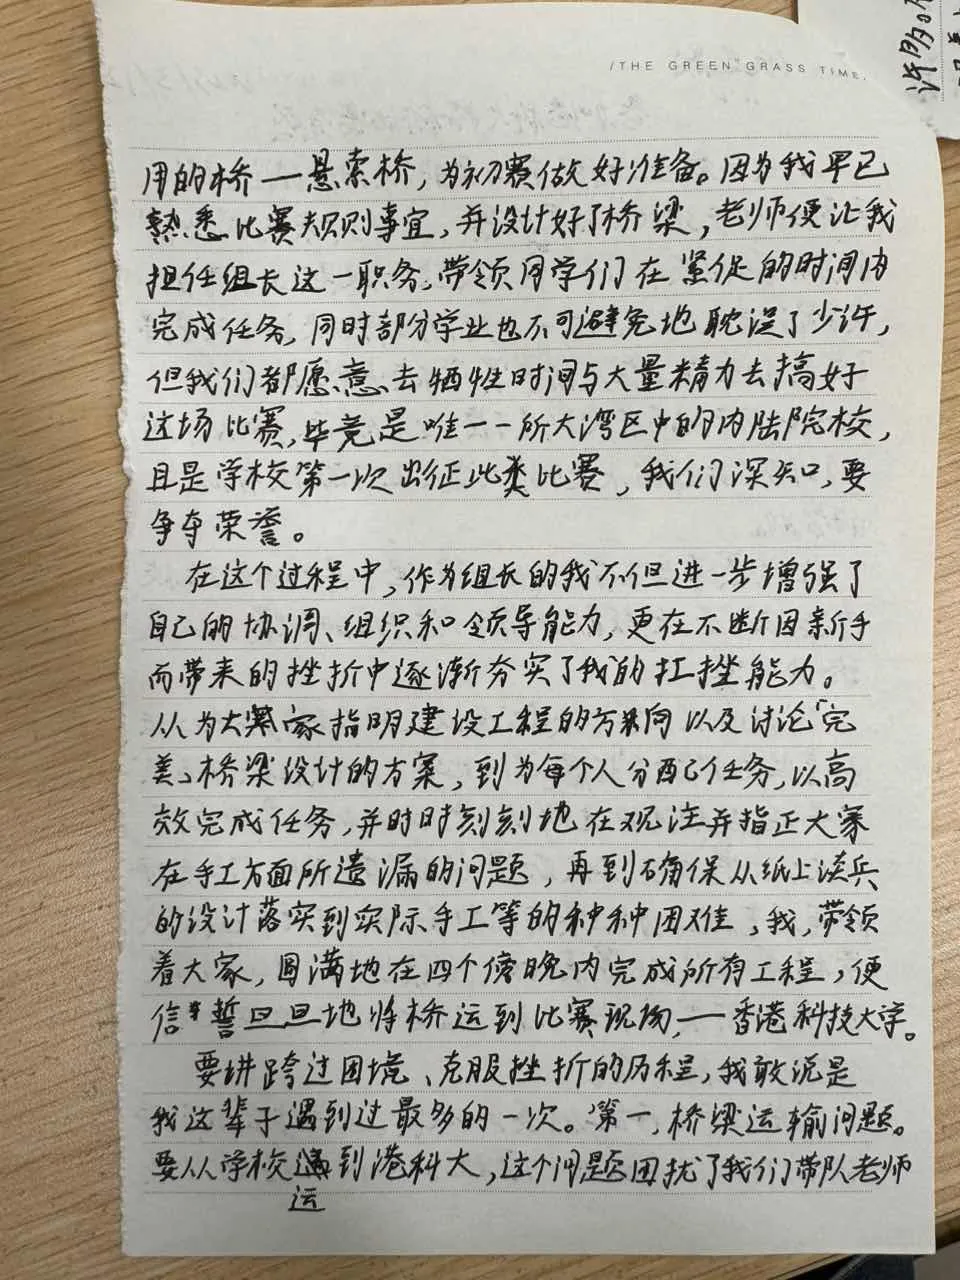 /THE GREEN GRASS TIME.
许多
用的桥—悬索桥，为初赛做好准备。因为我早已
熟悉比赛规则事宜，并设计好了桥梁，老师便让我
担任组长这一职务，带领同学们在紧促的时间内
完成任务，同时部分学业也不可避免地耽误了少许，
但我们都愿意去牺牲时间与大量精力去搞好
这场比赛，毕竟是唯一一所大湾区中的内陆院校，
且是学校第一次出征此类比赛，我们深知，要
争夺荣誉。
在这个过程中，作为组长的我不但进一步增强了
自己的协调、组织和领导能力，更在不断因新手
而带来的挫折中逐渐夯实了我的扛挫能力。
从为大家指明建设工程的方向以及讨论“完
美”桥梁设计的方案，到为每个人分配任务，以高
效完成任务，并时时刻刻地在观注并指正大家
在手工方面所遗漏的问题，再到确保从纸上谈兵
的设计落实到实际手工等的种种困难，我，带领
着大家，圆满地在四个傍晚内完成所有工程，便
信誓旦旦地将桥运到比赛现场—香港科技大学。
要讲跨过困境、克服挫折的历程，我敢说是
我这辈子遇到过最多的一次。第一，桥梁运输问题。
要从学校运到港科大，这个问题困扰了我们带队老师